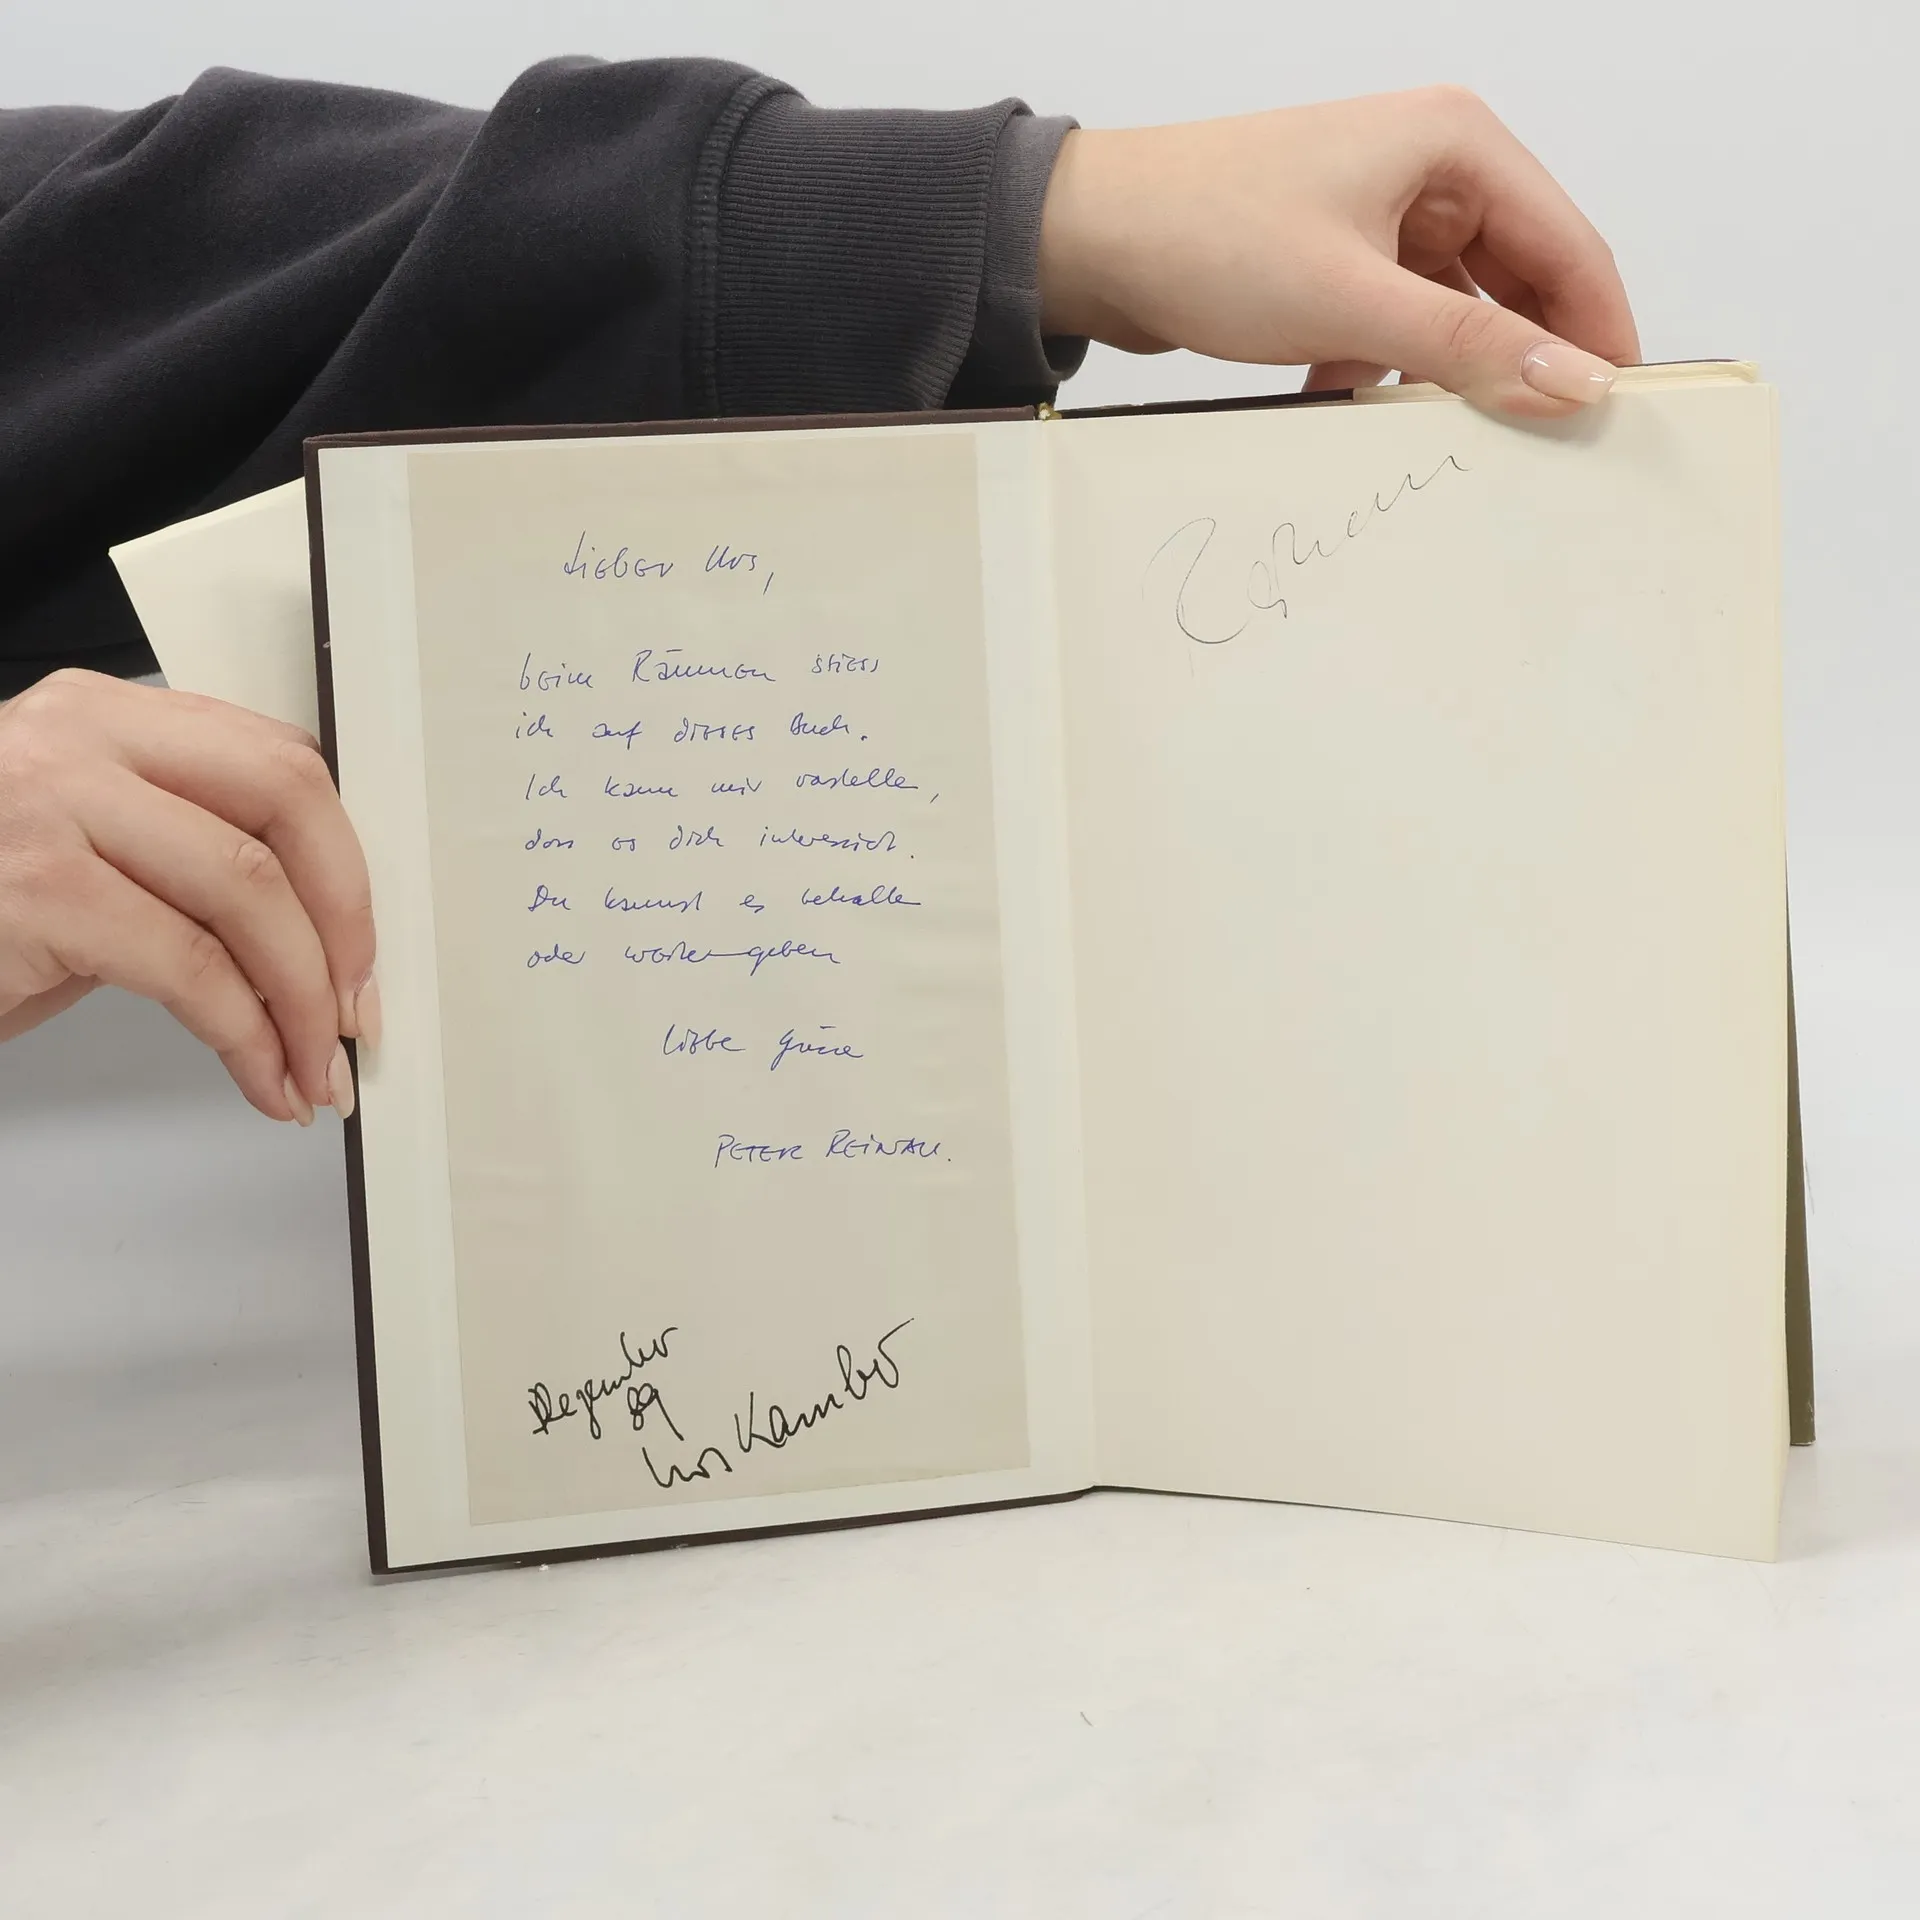 Lieber Urs,
beim Räumen stiess
ich auf dieses Buch.
Ich kann mir vorstelle,
dass es dich interessiert.
Du kannst es behalte
oder weitergeben
Liebe Grüsse
PETER REINAU.
Dezember
89
Urs Kamber